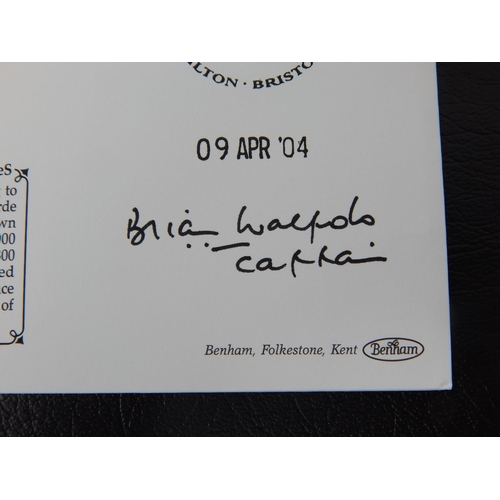 LTON · BRISTO
09 APR '04
es
g to
rde
wn
000
300
ed
ice
of
Brian Walpole
Captain
Benham, Folkestone, Kent Benham